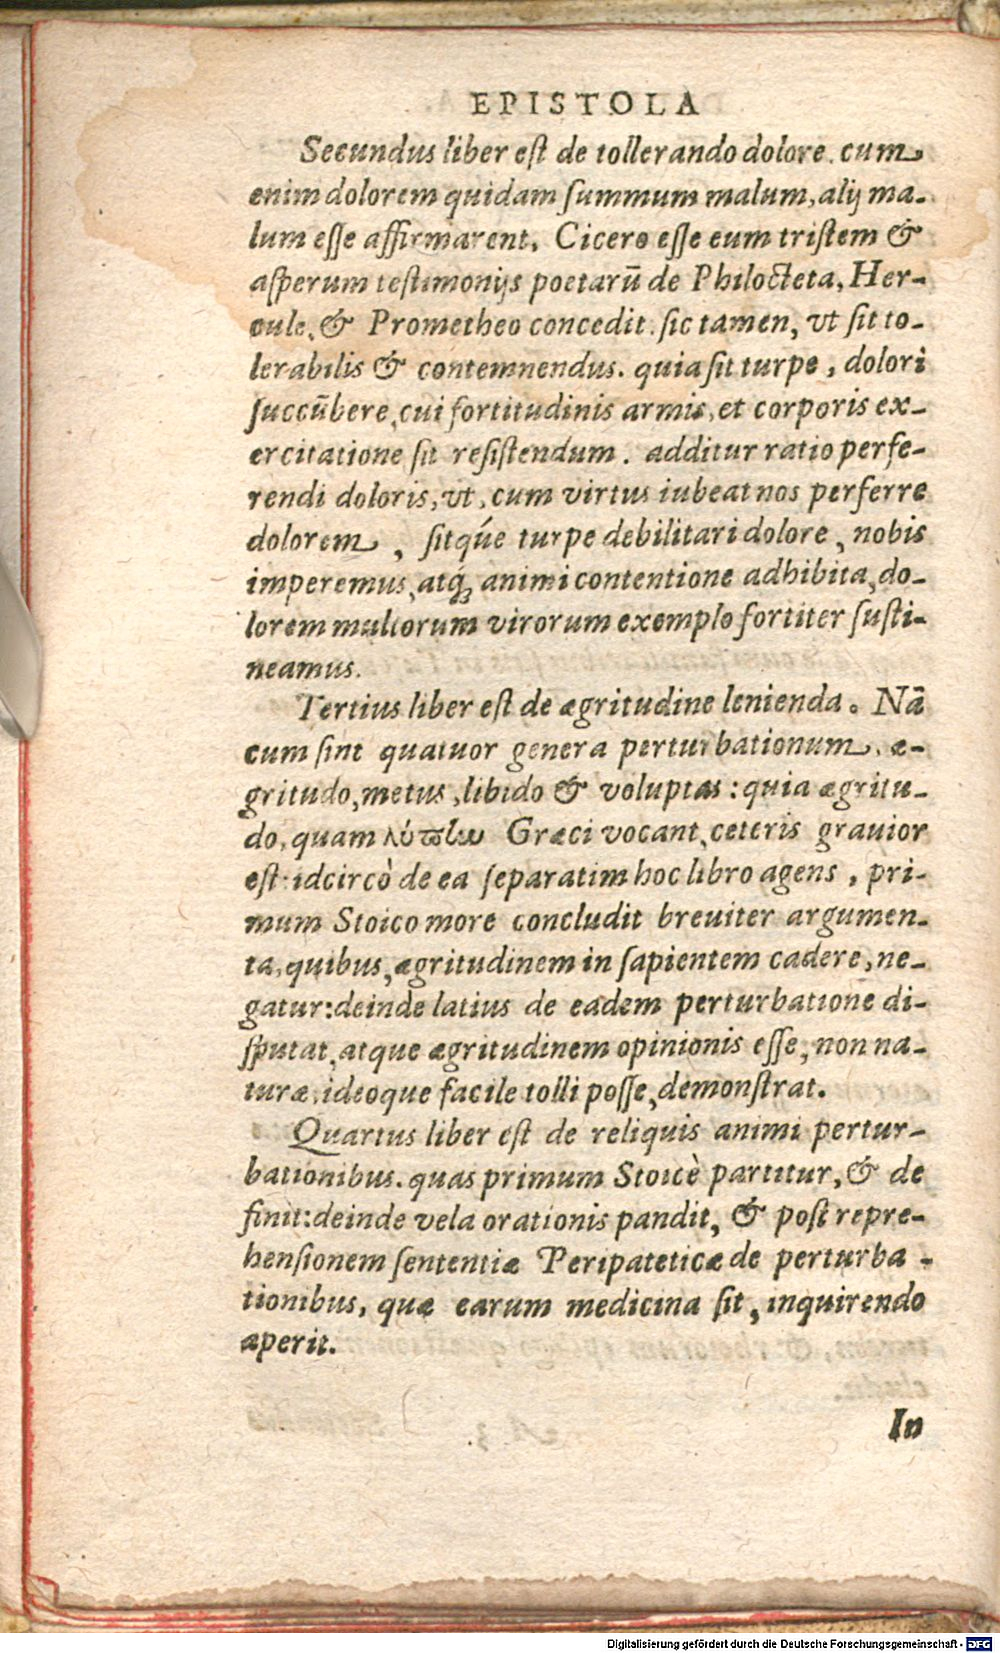 EPISTOLA
Secundus liber est de tollerando dolore. cum
enim dolorem quidam summum malum, alij ma-
lum esse affirmarent, Cicero esse eum tristem &
asperum testimonijs poetarū de Philocteta, Her-
cule, & Prometheo concedit. sic tamen, vt sit to-
lerabilis & contemnendus. quia sit turpe, dolori
succūbere, cui fortitudinis armis, et corporis ex-
ercitatione sit resistendum. additur ratio perfe-
rendi doloris, vt, cum virtus iubeat nos perferre
dolorem, sitq́ue turpe debilitari dolore, nobis
imperemus, atq́; animi contentione adhibita, do-
lorem multorum virorum exemplo fortiter susti-
neamus.
Tertius liber est de ægritudine lenienda. Nā
cum sint quatuor genera perturbationum, æ-
gritudo, metus, libido & voluptas: quia ægritu-
do, quam λύπην Græci vocant, ceteris grauior
est: idcircò de ea separatim hoc libro agens, pri-
mum Stoico more concludit breuiter argumen-
ta, quibus, ægritudinem in sapientem cadere, ne-
gatur: deinde latius de eadem perturbatione di-
sputat, atque ægritudinem opinionis esse, non na-
turæ, ideoque facile tolli posse, demonstrat.
Quartus liber est de reliquis animi pertur-
bationibus. quas primum Stoicè partitur, & de
finit: deinde vela orationis pandit, & post repre-
hensionem sententiæ Peripateticæ de perturba-
tionibus, quæ earum medicina sit, inquirendo
aperit.
In
Digitalisierung gefördert durch die Deutsche Forschungsgemeinschaft - DFG